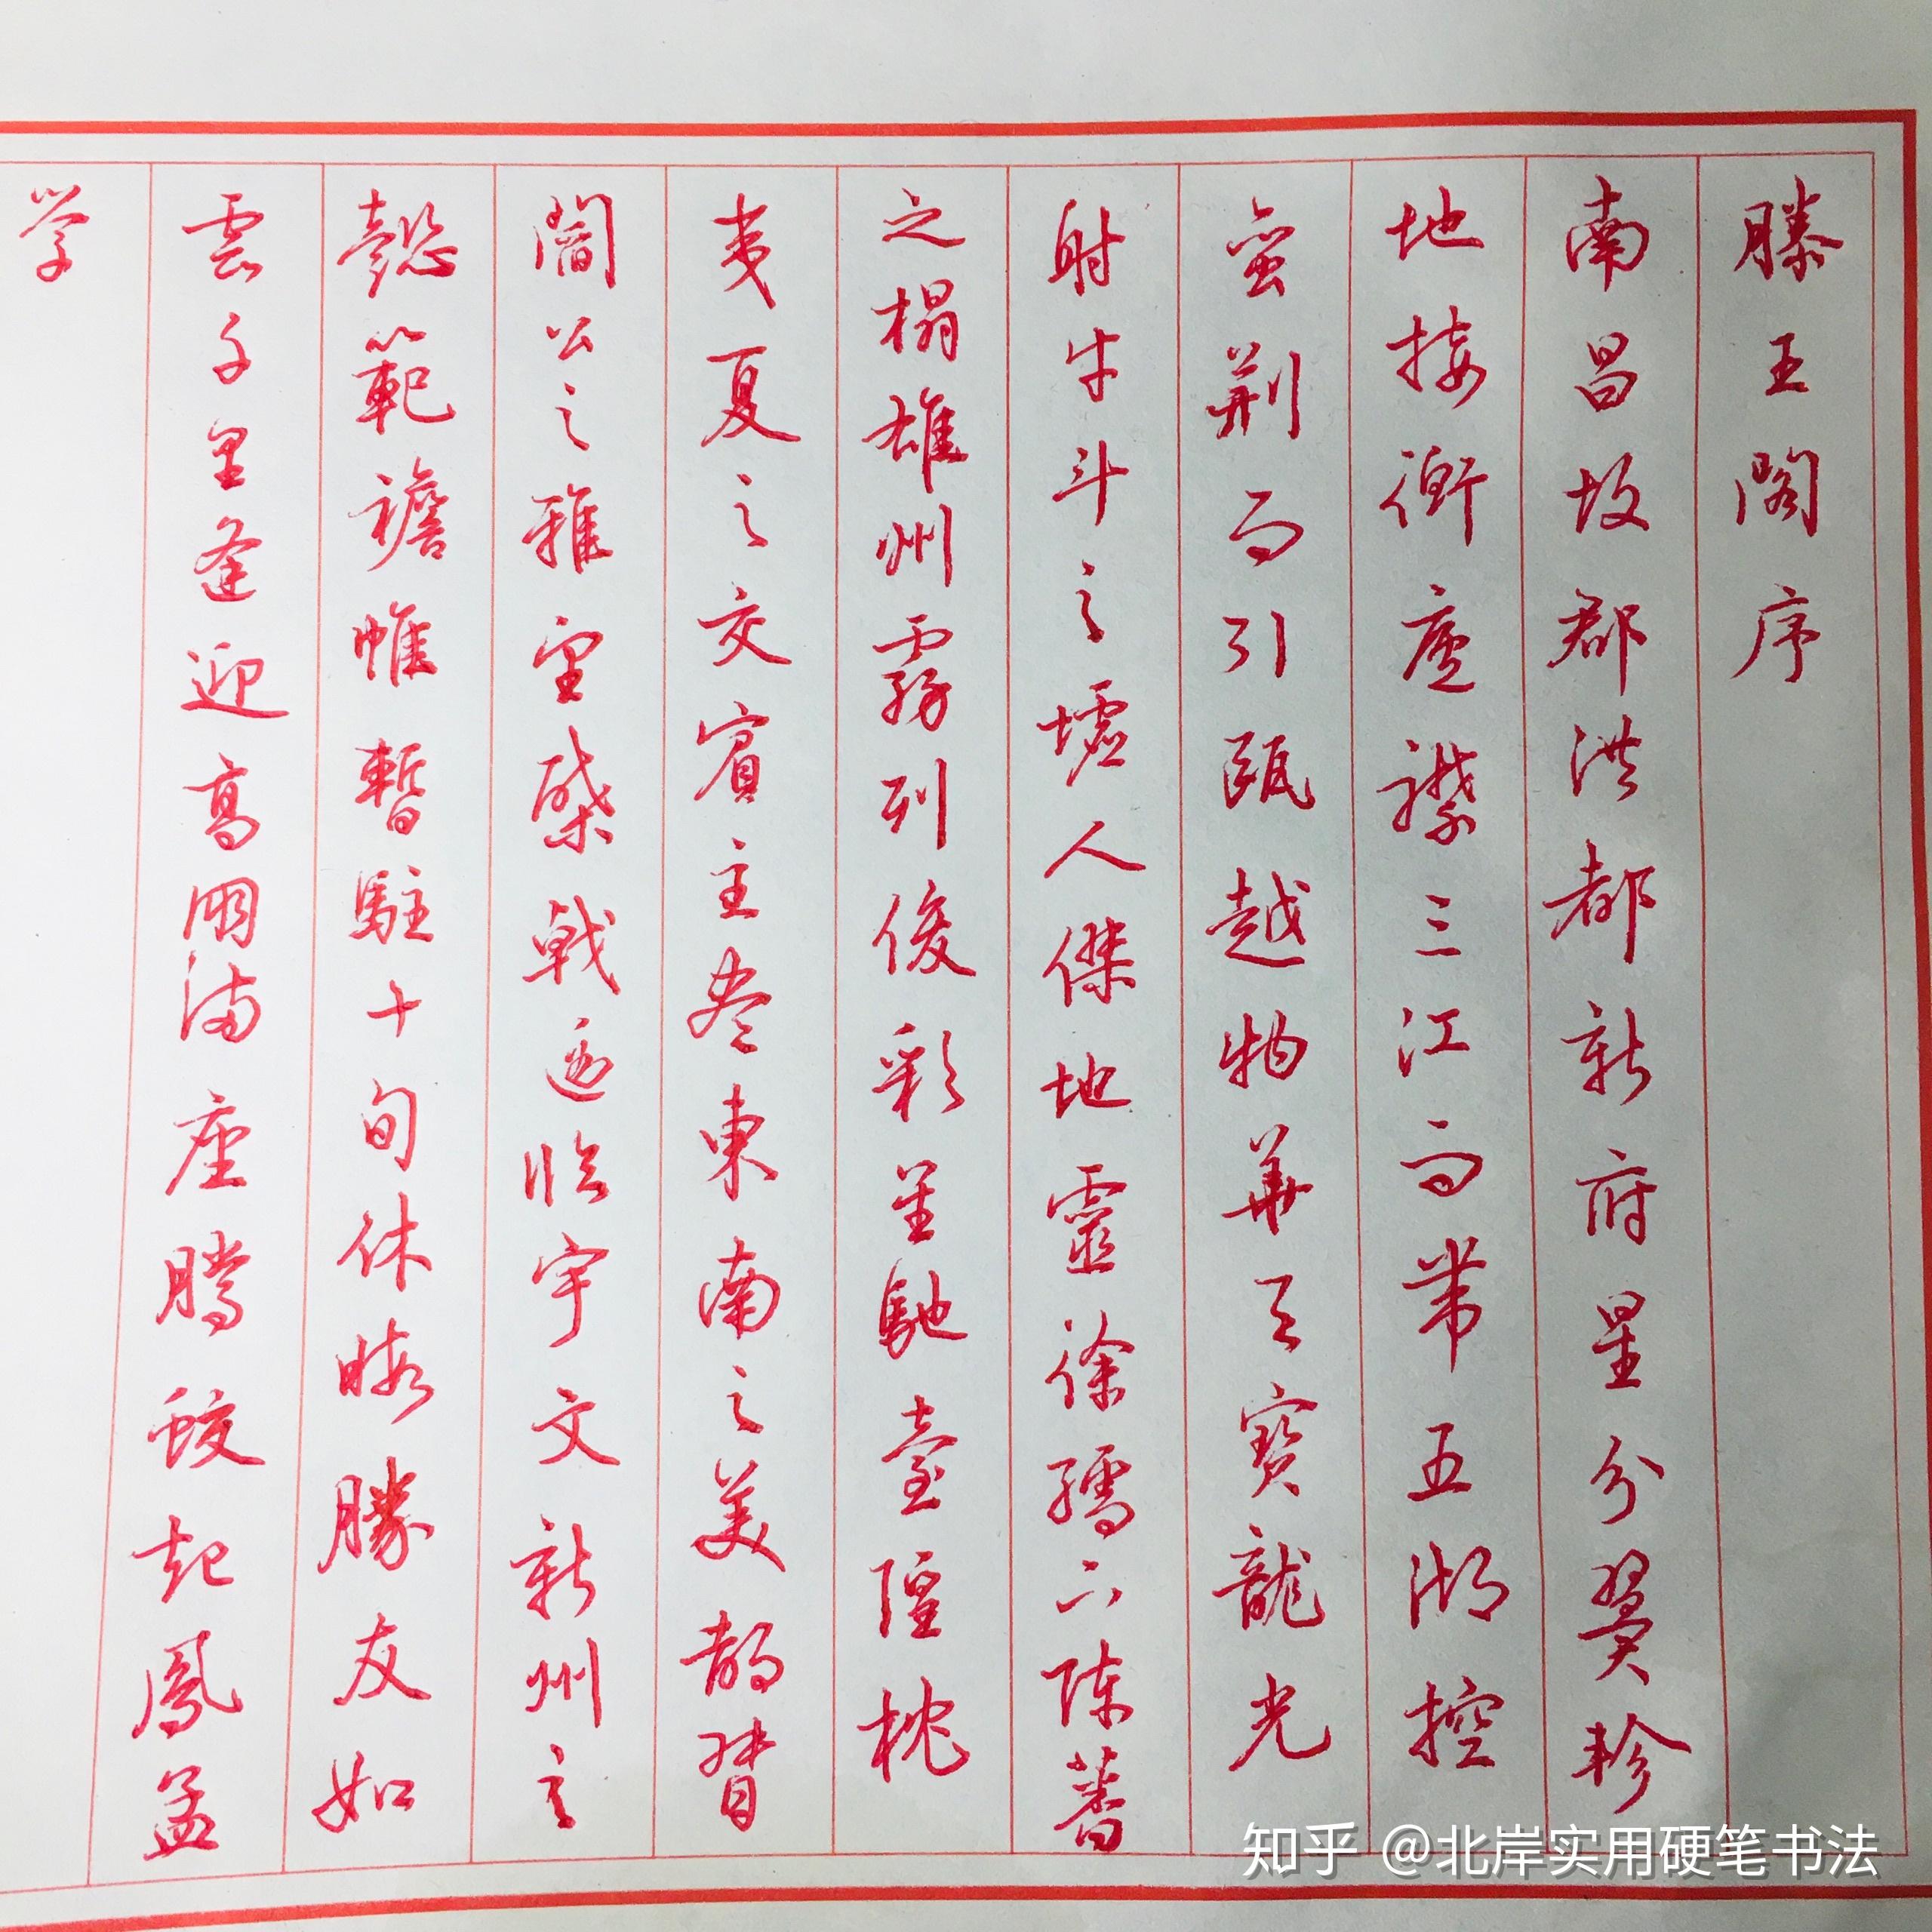 滕王閣序
南昌故郡洪都新府星分翼軫
地接衡廬襟三江而帶五湖控
蛮荆而引甌越物華天寶龍光
射牛斗之墟人傑地靈徐孺下陳蕃
之榻雄州霧列俊彩星馳臺隍枕
夷夏之交賓主盡東南之美都督
閻公之雅望棨戟遥臨宇文新州之
懿範襜帷暫駐十旬休暇勝友如
雲千里逢迎高朋滿座騰蛟起鳳孟
学
知乎 @北岸实用硬笔书法